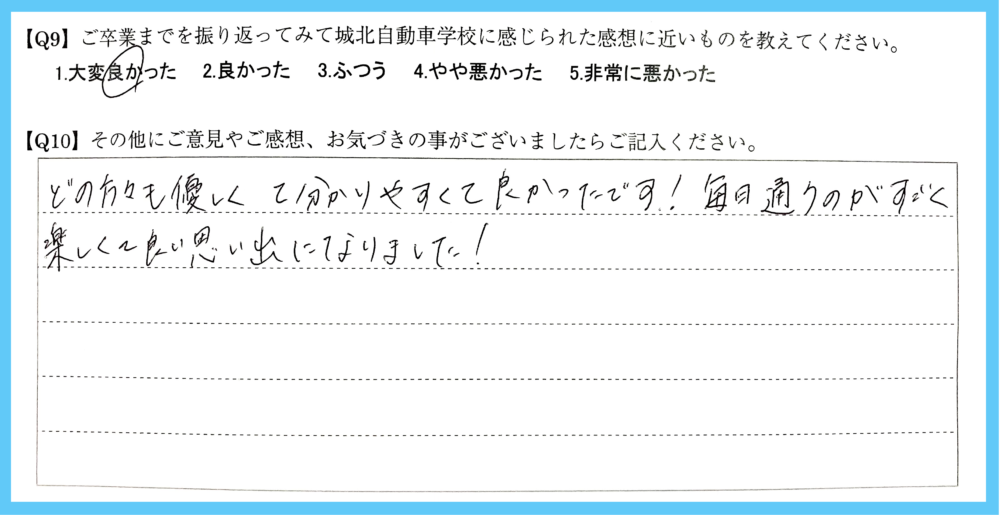 【Q9】ご卒業までを振り返ってみて城北自動車学校に感じられた感想に近いものを教えてください。
1.大変良かった 2.良かった 3.ふつう 4.やや悪かった 5.非常に悪かった
【Q10】その他にご意見やご感想、お気づきの事がございましたらご記入ください。
どの方々も優しくて分かりやすくて良かったです！毎日通うのがすごく
楽しくて良い思い出になりました！